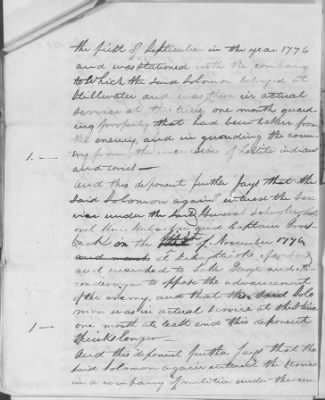 the first of September in the year 1776
and was stationed with the company
to which the said Solomon belonged at
Stillwater and was then in actual
service at this time one month guard
ing property that had been taken from
the enemy, and in guarding the coun
try from the incursions of hostile indians
1. — and tories —
And this deponent further says that the
said Solomon again entered the ser
vice under the said General Schuyler, Col
onel and Captain
on the first of November 1776
at
and marched to Lake George and
to oppose the advancement
of the enemy, and that the said Solo
mon was in actual service at this time
1 — one month at least and this deponent
thinks longer —
And this deponent further says that the
said Solomon again entered the service
in a company of militia under the com